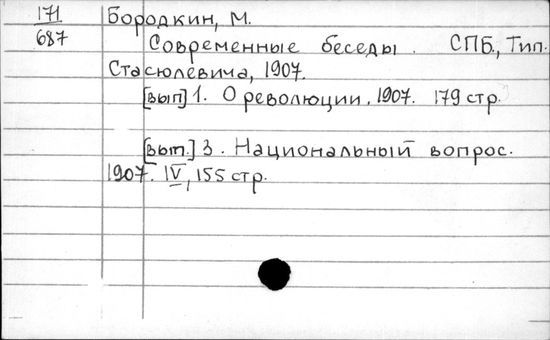 171
687
Бородкин, М.
Современные беседы. СПБ., Тип.
Стасюлевича, 1907.
[вып] 1. О революции. 1907. 179 стр.
[вып.] 3. Национальный вопрос.
1907. IV, 155 стр.